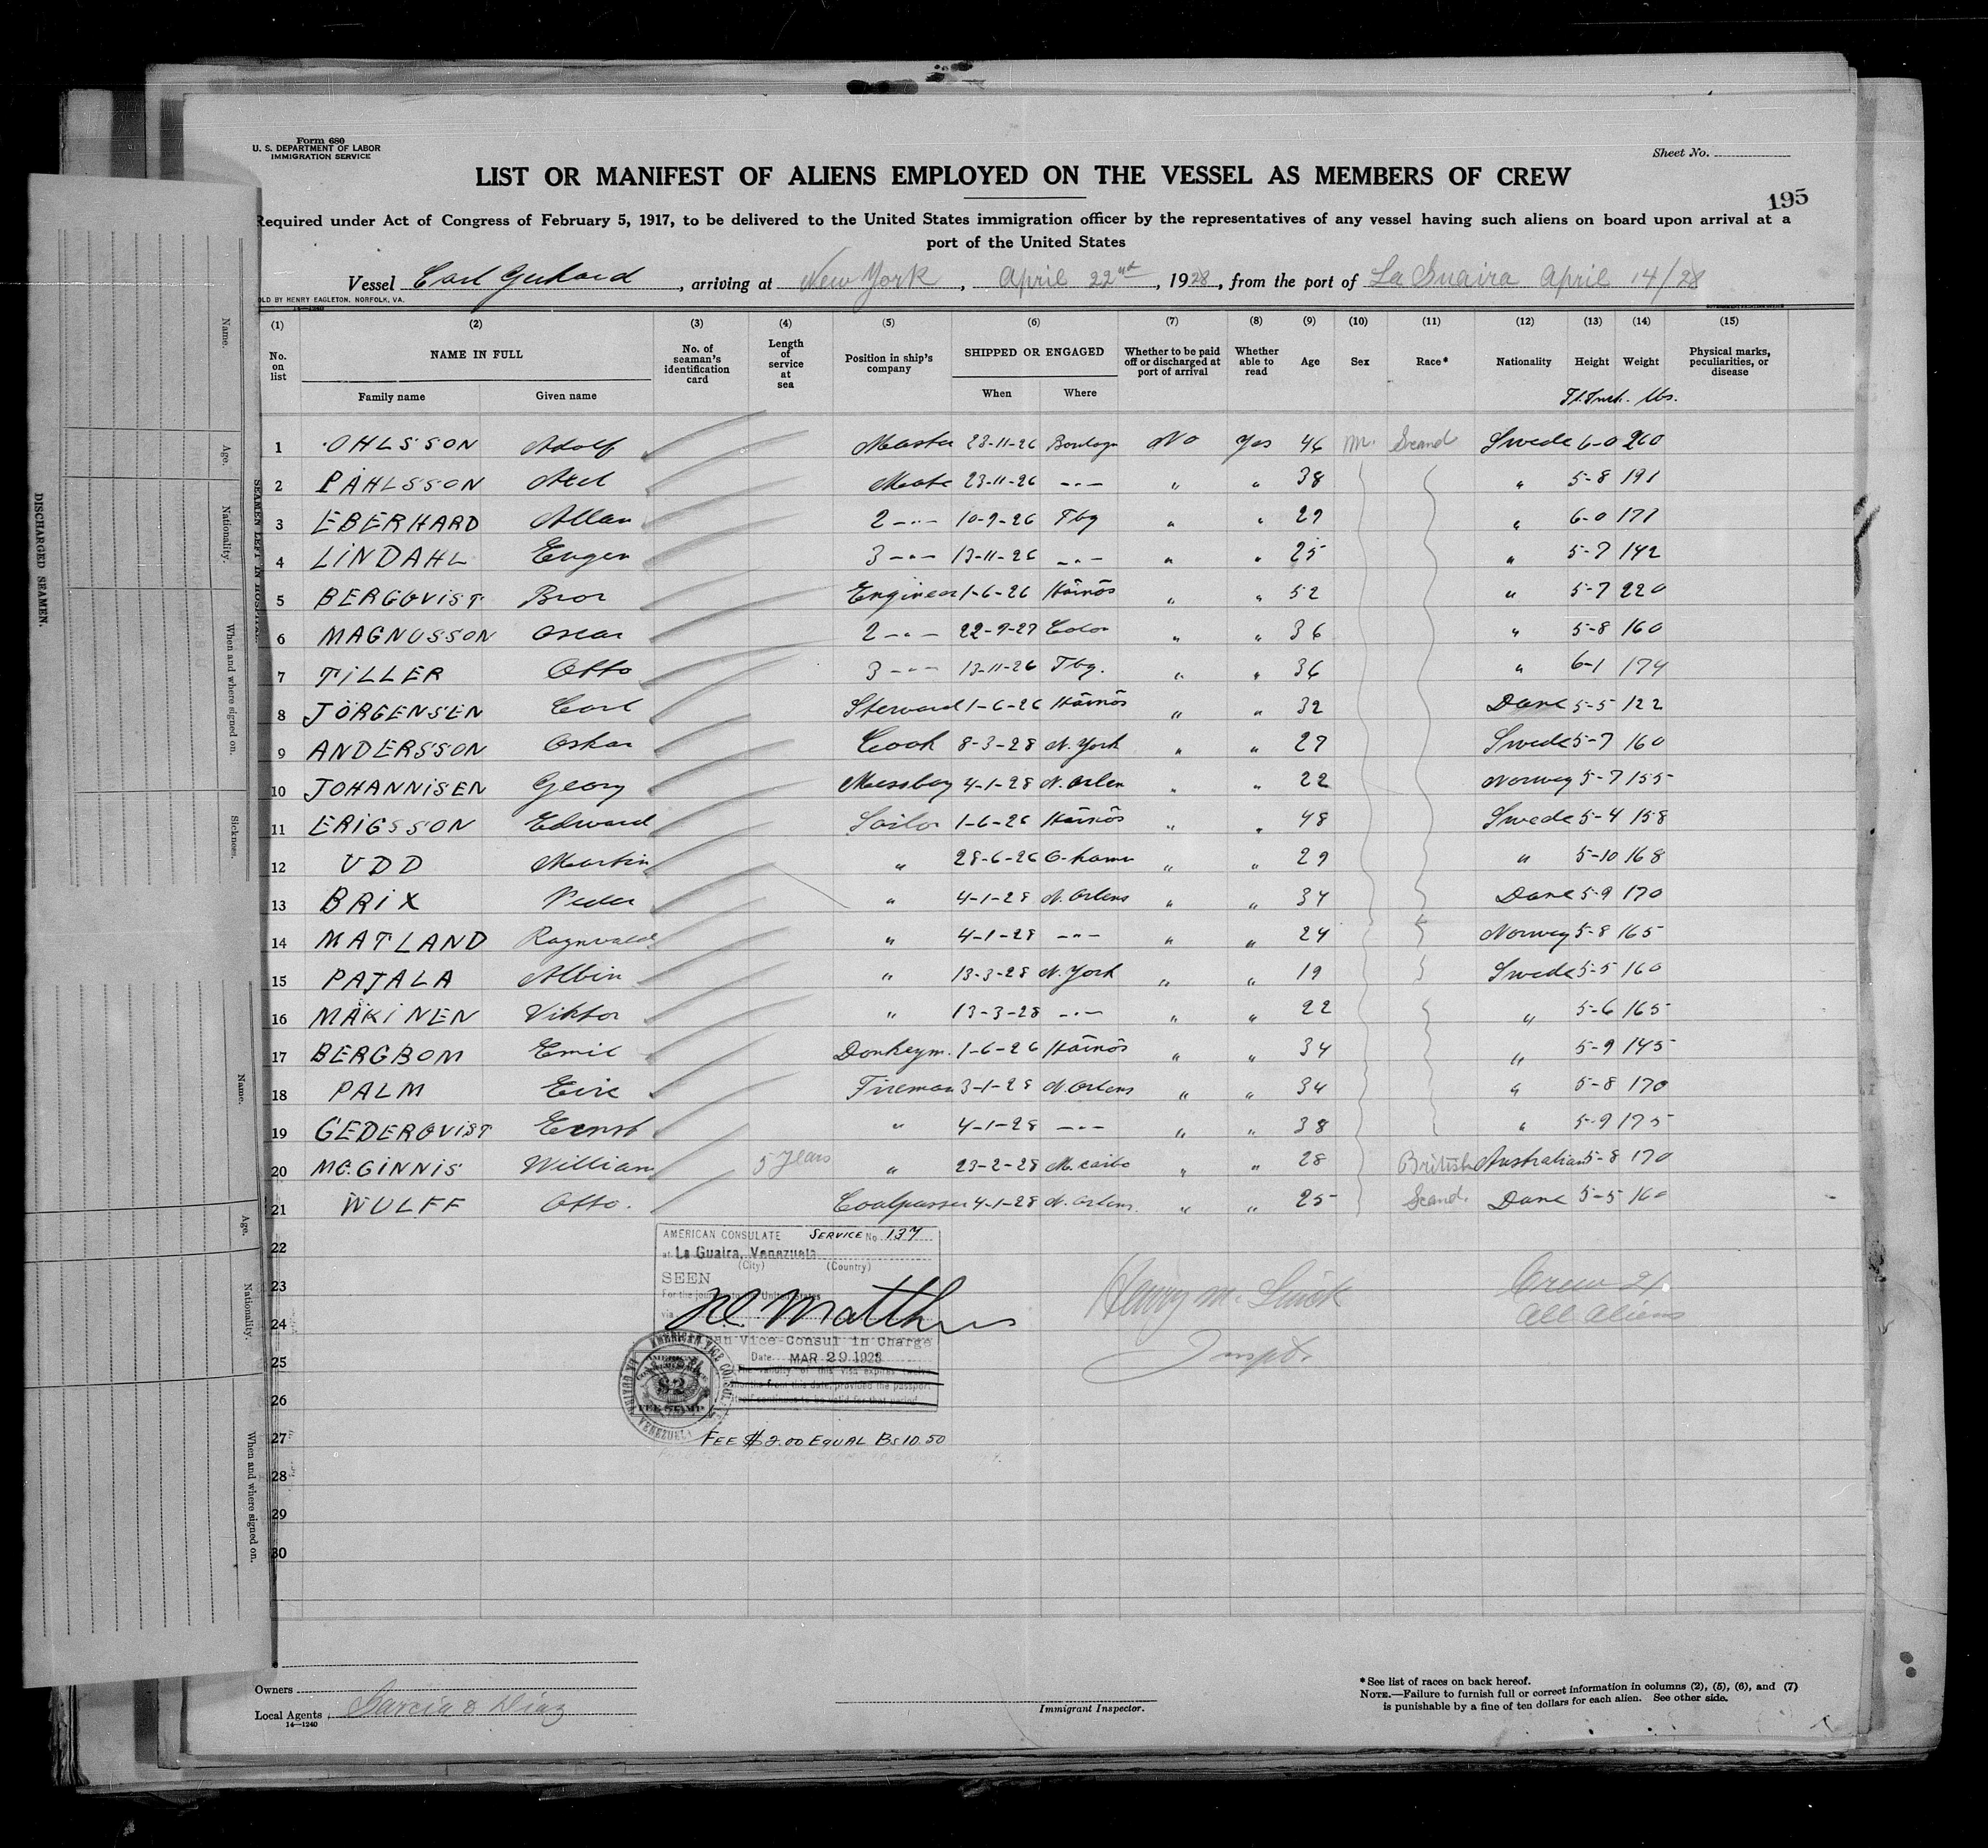 Form 680
U. S. DEPARTMENT OF LABOR
IMMIGRATION SERVICE
Sheet No.
LIST OR MANIFEST OF ALIENS EMPLOYED ON THE VESSEL AS MEMBERS OF CREW
195
Required under Act of Congress of February 5, 1917, to be delivered to the United States immigration officer by the representatives of any vessel having such aliens on board upon arrival at a
port of the United States
Vessel Carl Gerhard, arriving at New York, April 22nd, 1928, from the port of La Guaira April 14/28
SOLD BY HENRY EAGLETON, NORFOLK, VA.
14—1240
(1) (2) (3) (4) (5) (6) (7) (8) (9) (10) (11) (12) (13) (14) (15)
No. on list NAME IN FULL No. of seaman's identification card Length of service at sea Position in ship's company SHIPPED OR ENGAGED Whether to be paid off or discharged at port of arrival Whether able to read Age Sex Race* Nationality Height Weight Physical marks, peculiarities, or disease
Family name Given name When Where
Ft. Inch. lbs.
1 OHLSSON Adolf Master 23-11-26 Boulogn No Yes 46 M. Scand Swede 6-0 260
2 PÅHLSSON Axel Mate 23-11-26 -"- " " 38 " 5-8 191
3 EBERHARD Allan 2 -"- 10-9-26 Tbg " " 29 " 6-0 171
4 LINDAHL Eugen 3 -"- 13-11-26 -"- " " 25 " 5-7 142
5 BERGQVIST Bror Engineer 1-6-26 Härnös " " 52 " 5-7 220
6 MAGNUSSON Oscar 2 -"- 22-9-27 Colon " " 36 " 5-8 160
7 TILLER Otto 3 -"- 13-11-26 Tbg. " " 36 " 6-1 174
8 JÖRGENSEN Carl Steward 1-6-26 Härnös " " 32 Dane 5-5 122
9 ANDERSSON Oskar Cook 8-3-28 N. York " " 27 Swede 5-7 160
10 JOHANNISEN Georg Messboy 4-1-28 N. Orlen " " 22 Norweg 5-7 155
11 ERIGSSON Edward Sailor 1-6-26 Härnös " " 48 Swede 5-4 158
12 UDD Martin " 28-6-26 O-hamn " " 29 " 5-10 168
13 BRIX Peder " 4-1-28 N. Orlens " " 34 Dane 5-9 170
14 MATLAND Ragnvald " 4-1-28 -"- " " 24 Norweg 5-8 165
15 PAJALA Albin " 13-3-28 N. York " " 19 Swede 5-5 160
16 MÄKINEN Viktor " 13-3-28 -"- " " 22 " 5-6 165
17 BERGBOM Emil Donkeym. 1-6-26 Härnös " " 34 " 5-9 145
18 PALM Eric Fireman 3-1-28 N. Orlens " " 34 " 5-8 170
19 GEDERQVIST Ernst " 4-1-28 -"- " " 38 " 5-9 175
20 MC.GINNIS William 5 years " 23-2-28 M.caibo " " 28 British Australian 5-8 170
21 WULFF Otto. Coalpasser 4-1-28 N. Orlens. " " 25 Scand. Dane 5-5 160
22
23
24
25
26
27
28
29
30
AMERICAN CONSULATE SERVICE No 137
at La Guaira, Venezuela
(City) (Country)
SEEN
For the journey to the United States
via
Vice-Consul in Charge
Date MAR 29 1928
The validity of this visa expires twelve
months from this date, provided the passport
itself continues to be valid for that period
AMERICAN VICE CONSUL
LA GUAIRA
VENEZUELA
$2
FEE STAMP
FEE $2.00 EQUAL Bs 10.50
Inspt.
Crew 21
All aliens
Owners
Local Agents Garcia & Diaz
14—1240
Immigrant Inspector.
*See list of races on back hereof.
NOTE.—Failure to furnish full or correct information in columns (2), (5), (6), and (7)
is punishable by a fine of ten dollars for each alien. See other side.
DISCHARGED SEAMEN.
SEAMEN LEFT IN HOSPITAL.
Name.
Age.
Nationality.
When and where signed on.
Sickness.
Name.
Age.
Nationality.
When and where signed on.